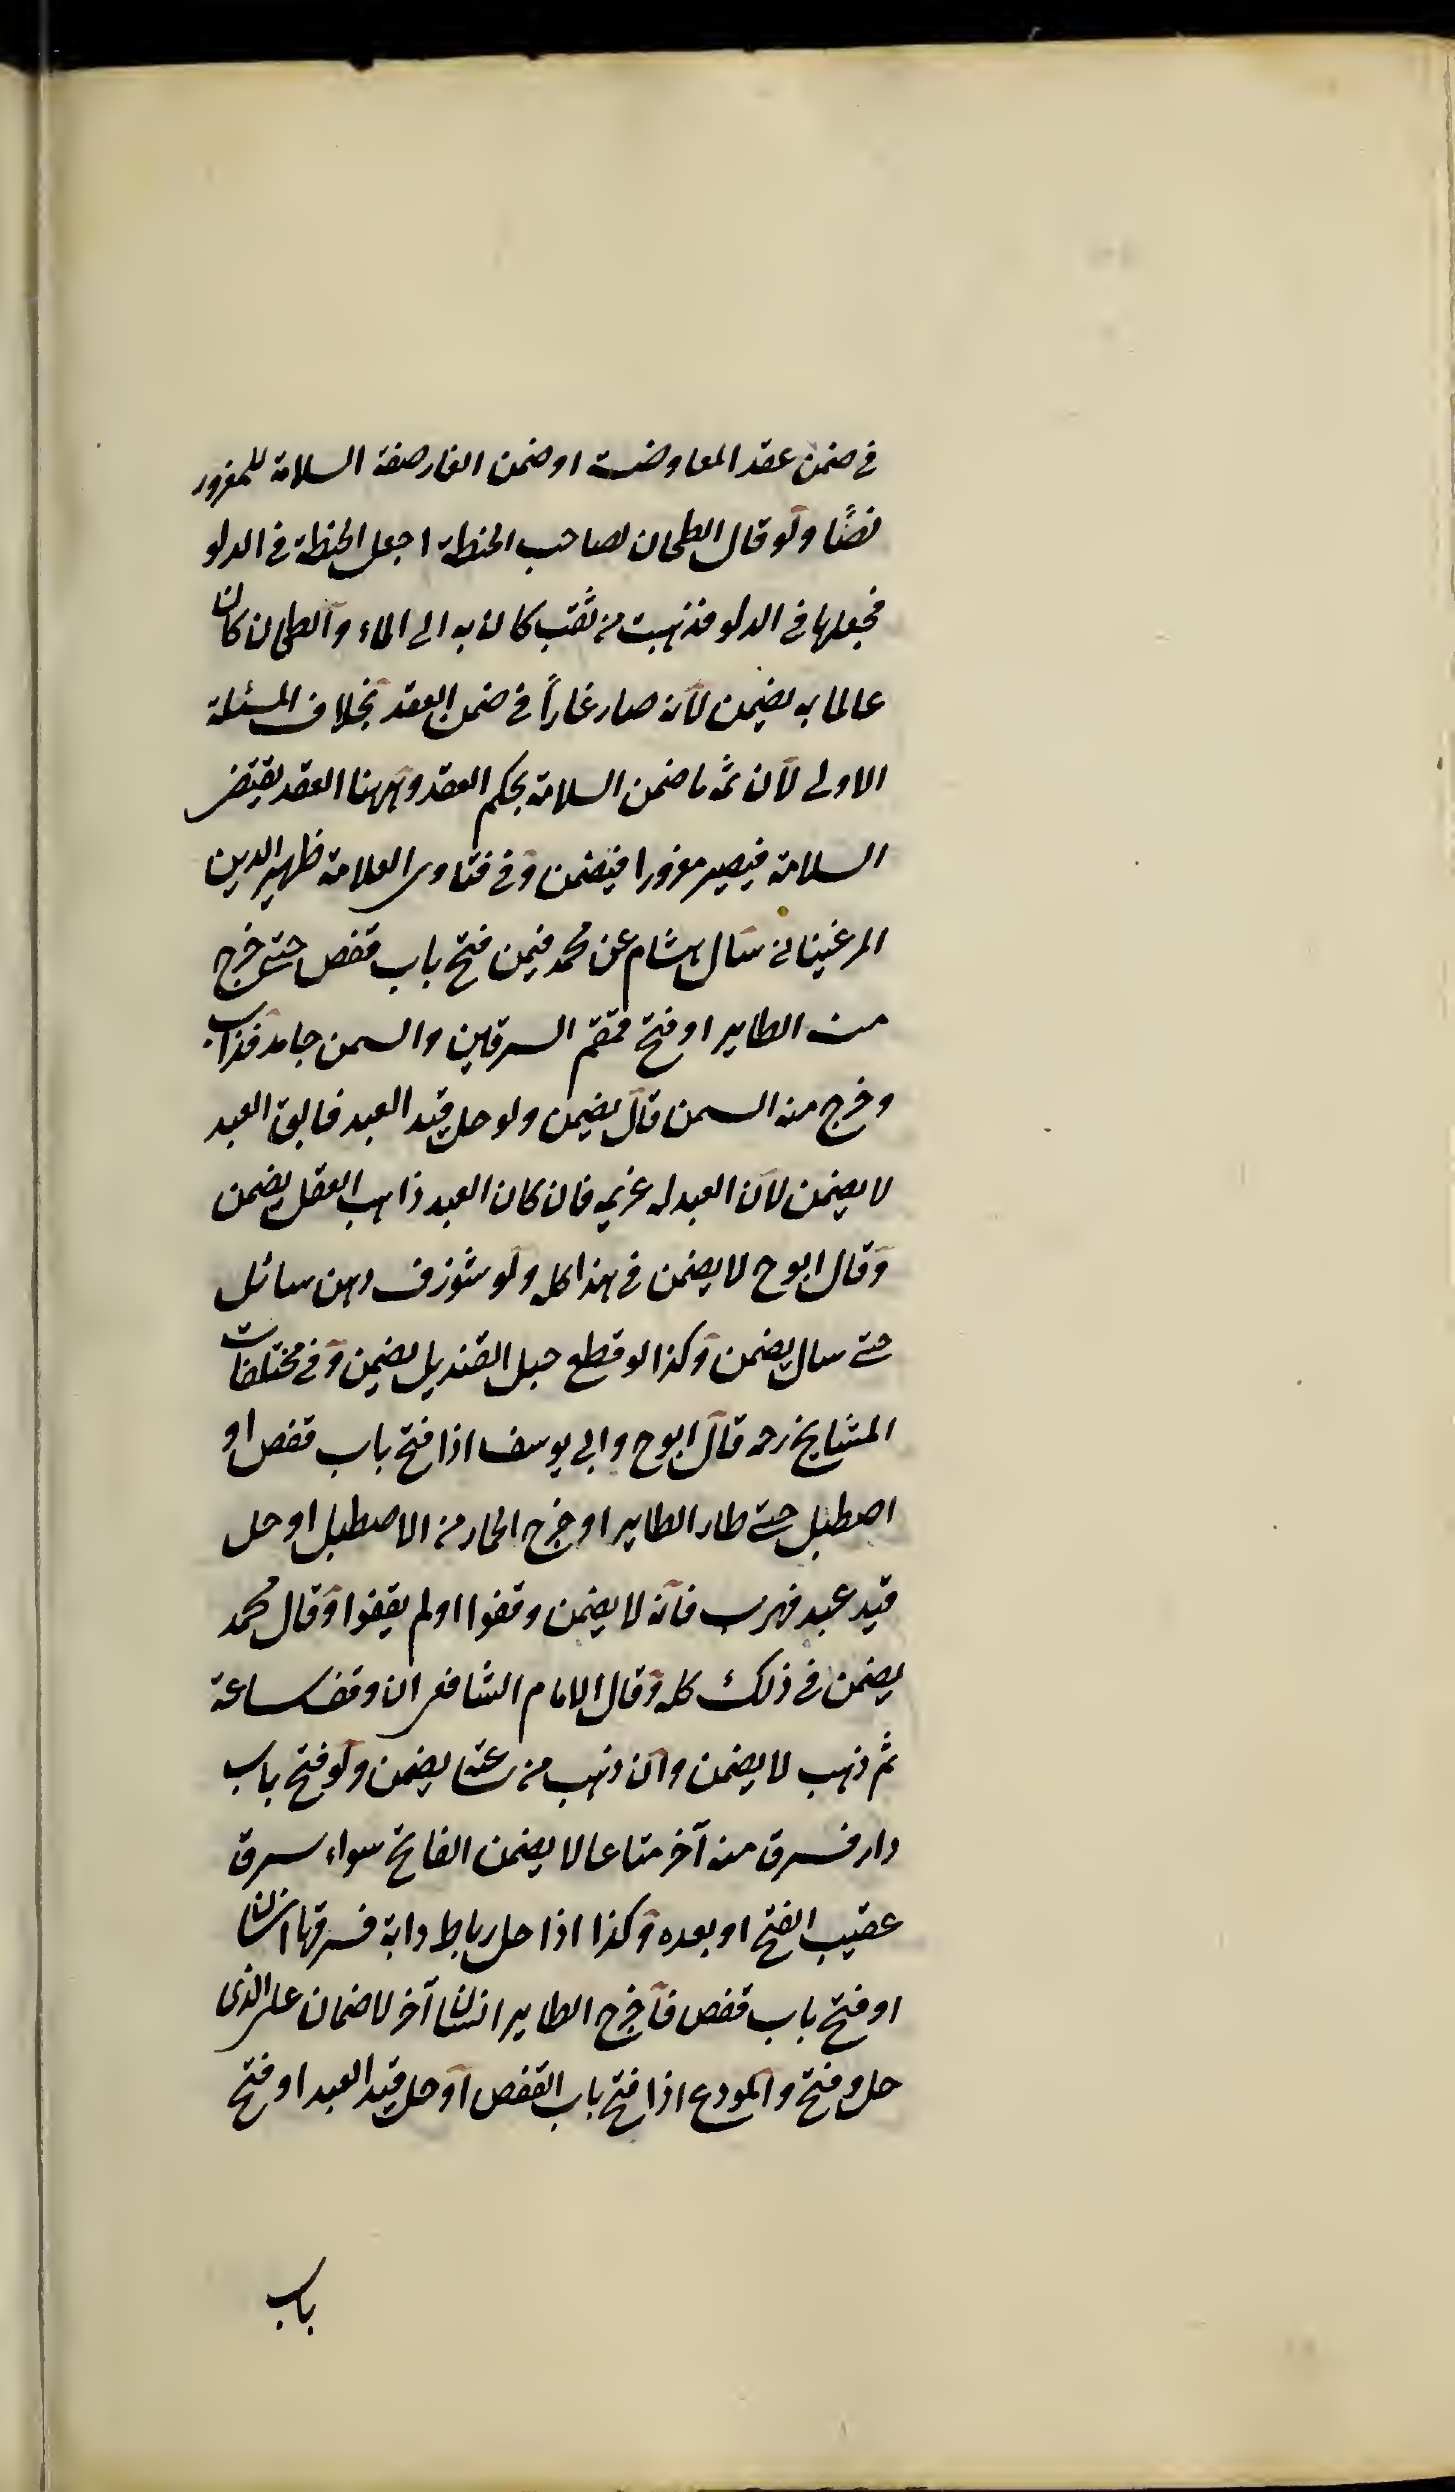 في ضمن عقد المعاوضة او ضمن الغار صفة السلامة للمغرور
نصًّا ولو قال الطحان لصاحب الحنطة اجعل الحنطة في الدلو
فجعلها في الدلو فذهبت من ثقب كان به الى الماء والطحان كان
عالما به يضمن لانه صار غارًا في ضمن العقد بخلاف المسئلة
الاولى لان ثمه ما ضمن السلامة بحكم العقد وههنا العقد يقتضى
السلامة فيصير مغرورا فيضمن وفي فتاوى العلامة ظهير الدين
المرغيناني سال هشام عن محمد فيمن فتح باب قفص حتى خرج
منه الطاير او فتح قمقم السرقين والسمن جامد فذاب
وخرج منه السمن قال يضمن ولو حل قيد العبد فابق العبد
لا يضمن لان العبد له عزيمه فان كان العبد ذاهب العقل يضمن
وقال ابوح لا يضمن في هذا كله ولو شق زق دهن سائل
حتى سال يضمن وكذا لو قطع حبل القنديل يضمن وفي مختلفات
المشايخ رحمه قال ابوح وابي يوسف اذا فتح باب قفص او
اصطبل حتى طار الطاير او خرج الحمار من الاصطبل او حل
قيد عبد فهرب فانه لا يضمن وقفوا او لم يقفوا وقال محمد
يضمن في ذلك كله وقال الامام الشافعى ان وقف ساعة
ثم ذهب لا يضمن وان ذهب من ساعته يضمن ولو فتح باب
دار فسرق منه آخر متاعا لا يضمن الفاتح سواء سرق
عقيب الفتح او بعده وكذا اذا حل رباط دابة فسرقها انسان
او فتح باب قفص فاخرج الطاير انسان آخر لا ضمان على الذى
حل وفتح والمودع اذا فتح باب القفص او حل قيد العبد او فتح
باب